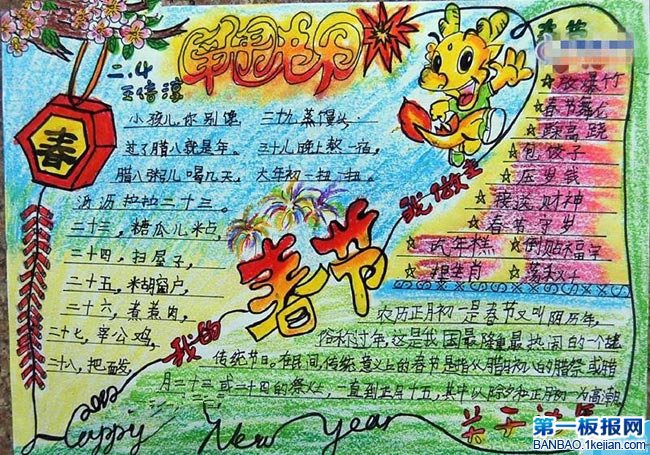 二.4
王倍淳
春
小孩儿,你别馋
过了腊八就是年。
腊八粥儿喝几天,
沥沥拉拉二十三。
二十三,糖瓜儿粘,
二十四,扫屋子,
二十五,米胡窗户,
二十六,煮煮肉,
二十七,宰公鸡,
二十八,把面发,
二十九,蒸馒头,
三十儿晚上熬一宿,
大年初一扭一扭。
我的
春节
我做主
☆放爆竹
☆春节舞龙
☆踩高跷
☆包饺子
☆压岁钱
☆接送财神
☆春节守岁
☆吃年糕
☆倒贴福字
农历正月初一是春节又叫阴历年,
俗称过年,这是我国最隆重最热闹的一个
传统节日。在民间,传统意义上的春节是指从腊月初八的腊祭或腊
月二十三或二十四的祭灶,一直到正月十五,其中以除夕和正月初一为高潮
2012
Happy New Year
第一板报网
BANBAO.1kejian.com